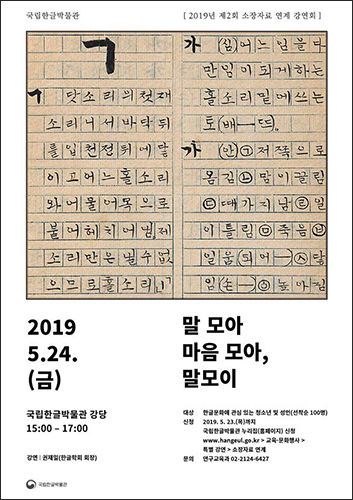 국립한글박물관
[ 2019년 제2회 소장자료 연계 강연회 ]
ㄱ
ㄱ 닷소리의첫재
소리니서바닥뒤
를입천전뒤에닿
이고어느홀소리
와어울어목으로
불어헤치어냄,제
소리만은낼수없
으므로홀소리
가 (심)어느임블다
만임이되게하는
홀소리밑에쓰는
토(배―뜨).
가 (안)ㄱ저쪽으로
옴김ㄴ맘이끌림
ㄷ때가지남ㄹ일
이틀림ㅁ죽음ㅂ
2019
5.24.
(금)
말 모아
마음 모아,
말모이
국립한글박물관 강당
15:00 – 17:00
강연 | 권재일(한글학회 회장)
대상 한글문화에 관심 있는 청소년 및 성인(선착순 100명)
신청 2019. 5. 23.(목)까지
국립한글박물관 누리집(홈페이지) 신청
www.hangeul.go.kr > 교육·문화행사 >
특별 강연 > 소장자료 연계
문의 연구교육과 02-2124-6427
국립한글박물관